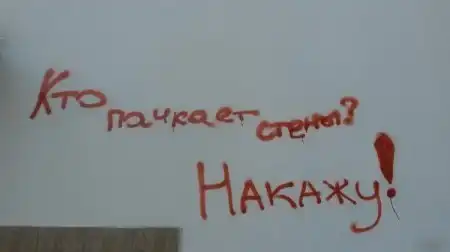 Кто пачкает стены?
Накажу!